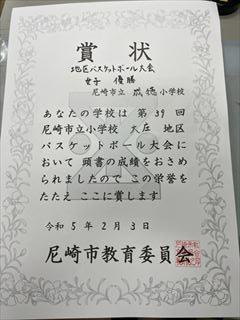 賞状
地区バスケットボール大会
女子 優勝
尼崎市立 成徳 小学校
あなたの学校は 第39回
尼崎市立小学校 大庄 地区
バスケットボール大会に
おいて 頭書の成績をおさめ
られましたので この栄誉を
たたえ ここに賞します
令和5年2月3日
尼崎市教育委員会